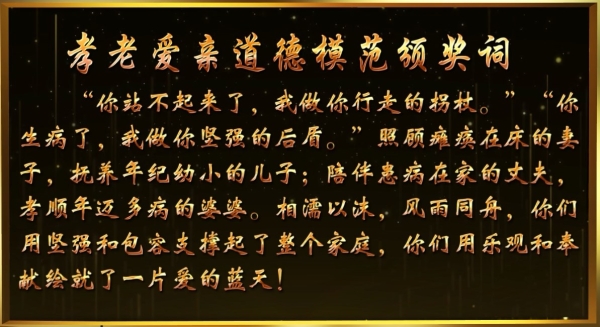 孝老爱亲道德模范颁奖词
“你站不起来了，我做你行走的拐杖。”“你
生病了，我做你坚强的后盾。”照顾瘫痪在床的妻
子，抚养年纪幼小的儿子；陪伴患病在家的丈夫，
孝顺年迈多病的婆婆。相濡以沫，风雨同舟，你们
用坚强和包容支撑起了整个家庭，你们用乐观和奉
献绘就了一片爱的蓝天！